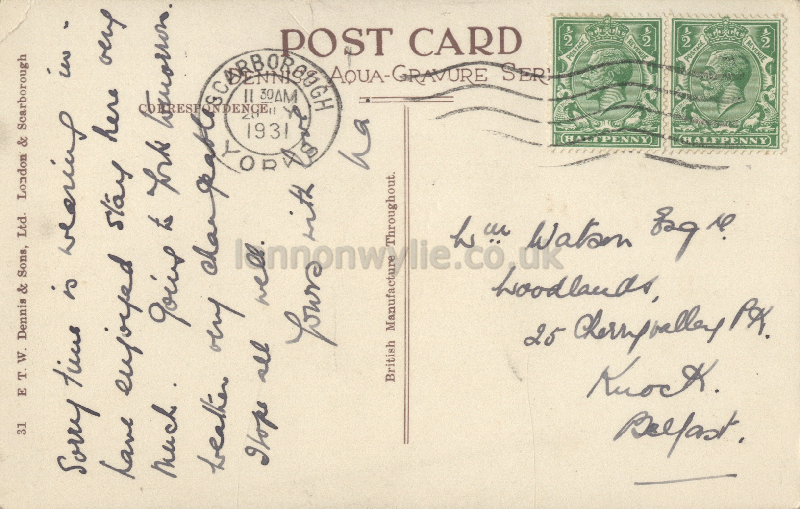 POST CARD
DENNIS AQUA-GRAVURE SER
CORRESPONDENCE
SCARBOROUGH
11 30AM
1931
YORKS
1/2 1/2
HALFPENNY
1/2 1/2
HALFPENNY
31 E. T. W. Dennis & Sons, Ltd. London & Scarborough
Sorry time is wearing in.
have enjoyed stay here very
much. Going to York tomorrow.
weather very changeable
I hope all well.
Yours with love
British Manufacture Throughout.
Wm Watson Esqre
Woodlands,
25 Cherryvalley Pk.
Knock.
Belfast.
lennonwylie.co.uk